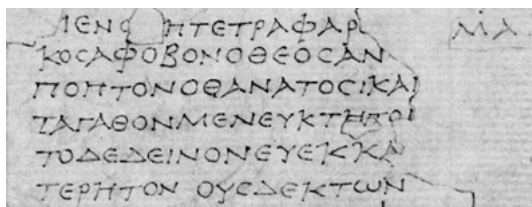 ΜΕΝΟ ΗΤΕΤΡΑΦΑΡ ΜΑ
ΚΟϹΑΦΟΒΟΝΟΘΕΟϹΑΝ
ΠΟΠΤΟΝΟΘΑΝΑΤΟϹ:ΚΑΙ
ΤΑΓΑΘΟΝΜΕΝΕΥΚΤΗΤΟ
ΤΟΔΕΔΕΙΝΟΝΕΥΕΚΚΑ
ΤΕΡΗΤΟΝ ΟΥϹΔΕΚΤΩΝ